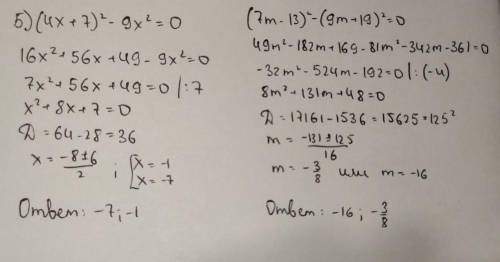 б) (4x+7)² - 9x² = 0
16x² + 56x + 49 - 9x² = 0
7x² + 56x + 49 = 0 |:7
x² + 8x + 7 = 0
D = 64 - 28 = 36
x = (-8±6)/2 ; [x = -1
x = -7
Ответ: -7; -1
(7m - 13)² - (9m + 19)² = 0
49m² - 182m + 169 - 81m² - 342m - 361 = 0
-32m² - 524m - 192 = 0 |:(-4)
8m² + 131m + 48 = 0
D = 17161 - 1536 = 15625 = 125²
m = (-131 ± 125)/16
m = -3/8 или m = -16
Ответ: -16; -3/8